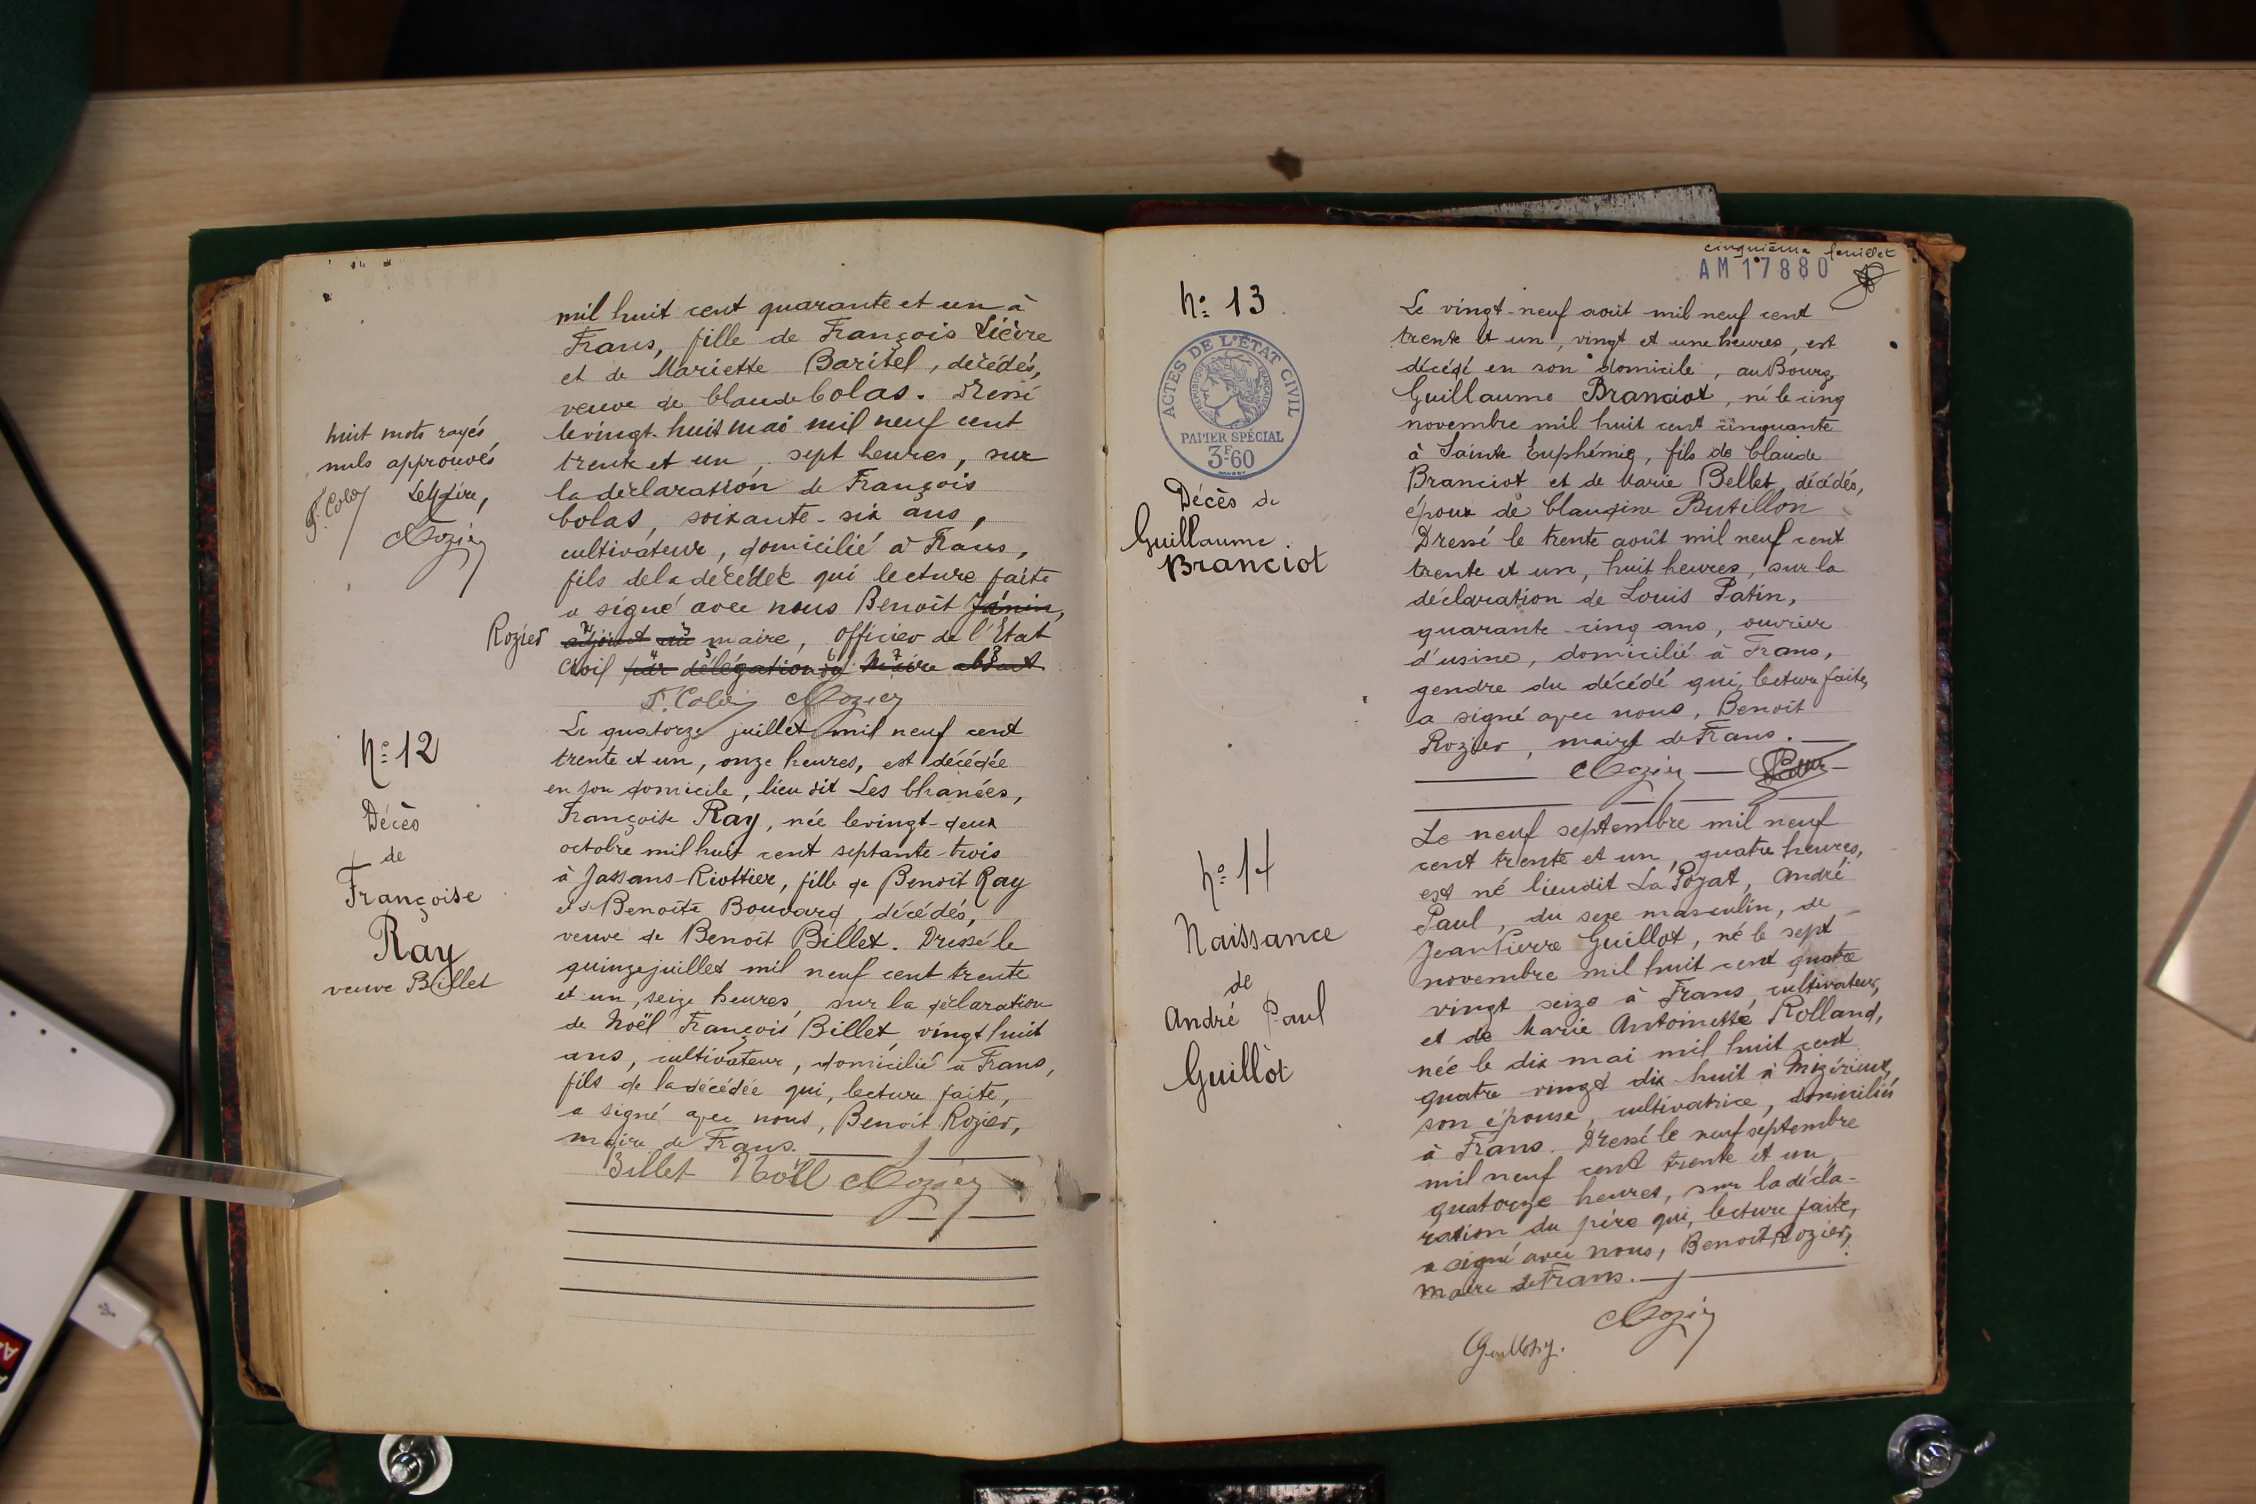 mil huit cent quarante et un à
Frans, fille de François Lièvre
et de Mariette Baritel, décédés,
veuve de Claude Colas. Dressé
le vingt-huit mai mil neuf cent
trente et un, sept heures, sur
la déclaration de François
Colas, soixante-six ans,
cultivateur, domicilié à Frans,
fils de la décédée qui lecture faite
a signé avec nous Benoît Janin,
Rozier adjoint au maire, Officier de l'Etat
Civil par délégation du Maire absent
huit mots rayés
nuls approuvés
Le Maire,
Rozier
F. Colas Rozier
N° 12
Décès
de
Françoise
Ray
veuve Billet
Le quatorze juillet mil neuf cent
trente et un, onze heures, est décédée
en son domicile, lieu dit Les Chanées,
Françoise Ray, née le vingt-deux
octobre mil huit cent septante-trois
à Jassans-Riottier, fille de Benoît Ray
et de Benoîte Bouvard, décédés,
veuve de Benoît Billet. Dressé le
quinze juillet mil neuf cent trente
et un, seize heures, sur la déclaration
de Noël François Billet, vingt huit
ans, cultivateur, domicilié à Frans,
fils de la décédée qui, lecture faite,
a signé avec nous, Benoit Rozier,
maire de Frans.
Billet Noël Rozier
cinquième feuillet
AM 17880
N° 13
ACTES DE L'ÉTAT CIVIL
RÉPUBLIQUE FRANÇAISE
PAPIER SPÉCIAL
3F60
Décès de
Guillaume
Branciot
Le vingt-neuf août mil neuf cent
trente et un, vingt et une heures, est
décédé en son domicile, au Bourg,
Guillaume Branciot, né le cinq
novembre mil huit cent cinquante
à Sainte Euphémie, fils de Claude
Branciot et de Marie Bellet, décédés,
époux de Claudine Butillon
Dressé le trente août mil neuf cent
trente et un, huit heures, sur la
déclaration de Louis Patin,
quarante-cinq ans, ouvrier
d'usine, domicilié à Frans,
gendre du décédé qui, lecture faite,
a signé avec nous, Benoit
Rozier, maire de Frans.
Rozier
N° 14
Naissance
de
André Paul
Guillot
Le neuf septembre mil neuf
cent trente et un, quatre heures,
est né lieudit La Pozat, André
Paul, du sexe masculin, de
Jean Pierre Guillot, né le sept
novembre mil huit cent quatre
vingt seize à Frans, cultivateur,
et de Marie Antoinette Rolland,
née le dix mai mil huit cent
quatre vingt dix-huit à Mizérieux,
son épouse, cultivatrice, domiciliés
à Frans. Dressé le neuf septembre
mil neuf cent trente et un,
quatorze heures, sur la décla-
ration du père qui, lecture faite,
a signé avec nous, Benoit Rozier,
maire de Frans.
Rozier